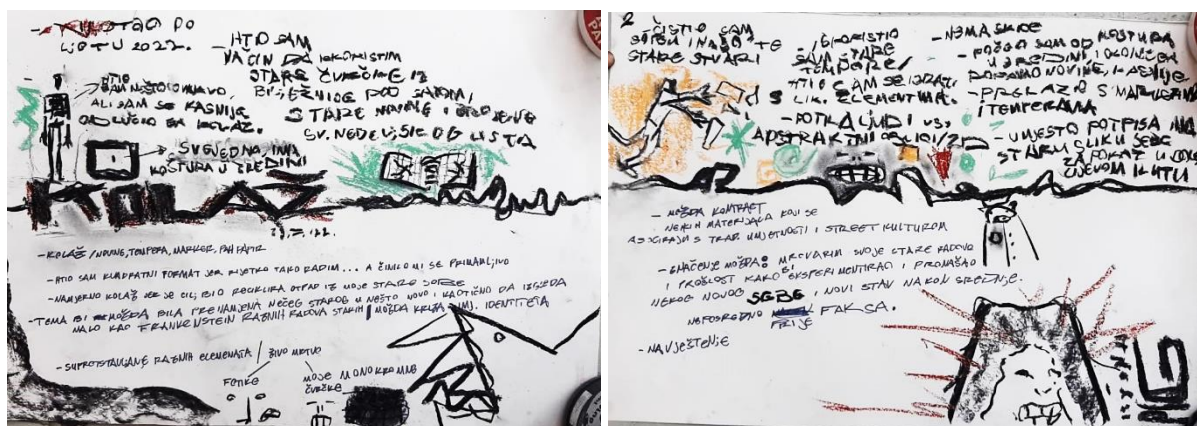 LJETU 2022.
- HTIO SAM
NAČIN DA ISKORISTIM
STARE ČVRČKE IZ
BILJEŽNICE POD SATOM,
STARE NOVINE I
SV. NEDELJSKOG LISTA
HTIO
SAM NEŠTO
ALI SAM SE KASNIJE
ODLUČIO ZA KOLAŽ.
SVEJEDNO IMA
KOSTURA U SREDINI
KOLAŽ
- KOLAŽ / NOVINE, TEMPERA, MARKER, PAK PAPIR
- HTIO SAM KVADRATNI FORMAT JER RIJETKO TAKO RADIM... A ČINILO MI SE PRIMAMLJIVO
- NAMJERNO KOLAŽ JER JE CILJ BIO RECIKLIRATI OTPAD IZ MOJE STARE SOBE
- TEMA BI MOŽDA BILA PRENAMJENA NEČEG STAROG U NEŠTO NOVO I KAOTIČNO DA IZGLEDA
MALO KAO FRANKENSTEIN RAZNIH RADOVA STARIH / MOŽDA KRIZA UMJ. IDENTITETA
- SUPROTSTAVLJANJE RAZNIH ELEMENATA / ŽIVO MRTVO
FOTKE
MOJE MONOKROMNE
ČVRČKE
2
- ČISTIO SAM
SOBU I NAŠO TE
STARE STVARI
- ISKORISTIO
SAM STARE
TEMPERE /
HTIO SAM SE IGRATI
S LIK. ELEMENTIMA.
- FOTKA LJUDI VS.
APSTRAKTNI OBLICI / 2D
- NEMA SKICE
- POČEO SAM OD KOSTURA
U SREDINI I OKOLO NJEGA
DODAVAO NOVINE, KASNIJE
- PRELAZIO S MARKERIMA
I TEMPERAMA
- UMJESTO POTPISA IMA
STARU SLIKU SEBE
ZA FOKAT U DONJEM
LIJEVOM KUTU
- MOŽDA KONTRAST
NEKIH MATERIJALA KOJI SE
ASOCIRAJU S TRAD. UMJETNOSTI I STREET KULTUROM
- ZNAČENJE MOŽDA: MRCVARIM SVOJE STARE RADOVE
I PROŠLOST KAKO BI EKSPERIMENTIRAO I PRONAŠAO
NEKOG NOVOG SEBE I NOVI STAV NAKON SREDNJE.
NEPOSREDNO PRIJE FAKSA.
- NAVJEŠTENJE